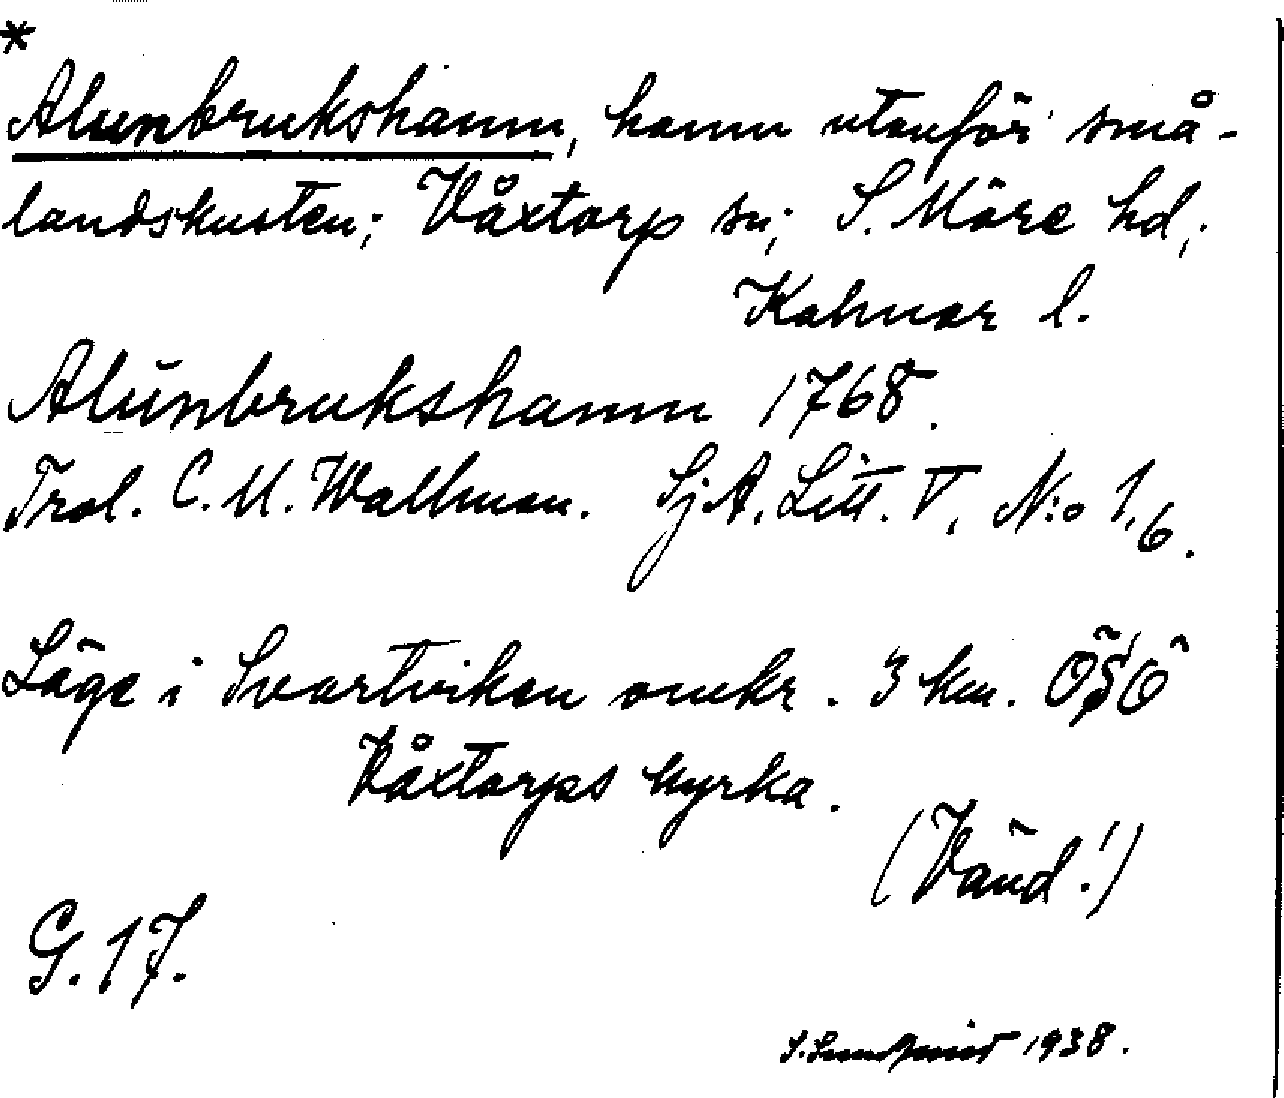 *
Alunbrukshamn, hamn utanför små-
landskusten; Våxtorp sn; S. Möre hd,
Kalmar l.
Alúnbrukshamn 1768.
Trol. C. U. Wallman. SjA. Litt. V, N:o 1,6.
Läge i Svartviken omkr. 3 km. ÖSÖ
Våxtorps kyrka.
(Vänd!)
G. 17.
S. Sundqvist 1938.